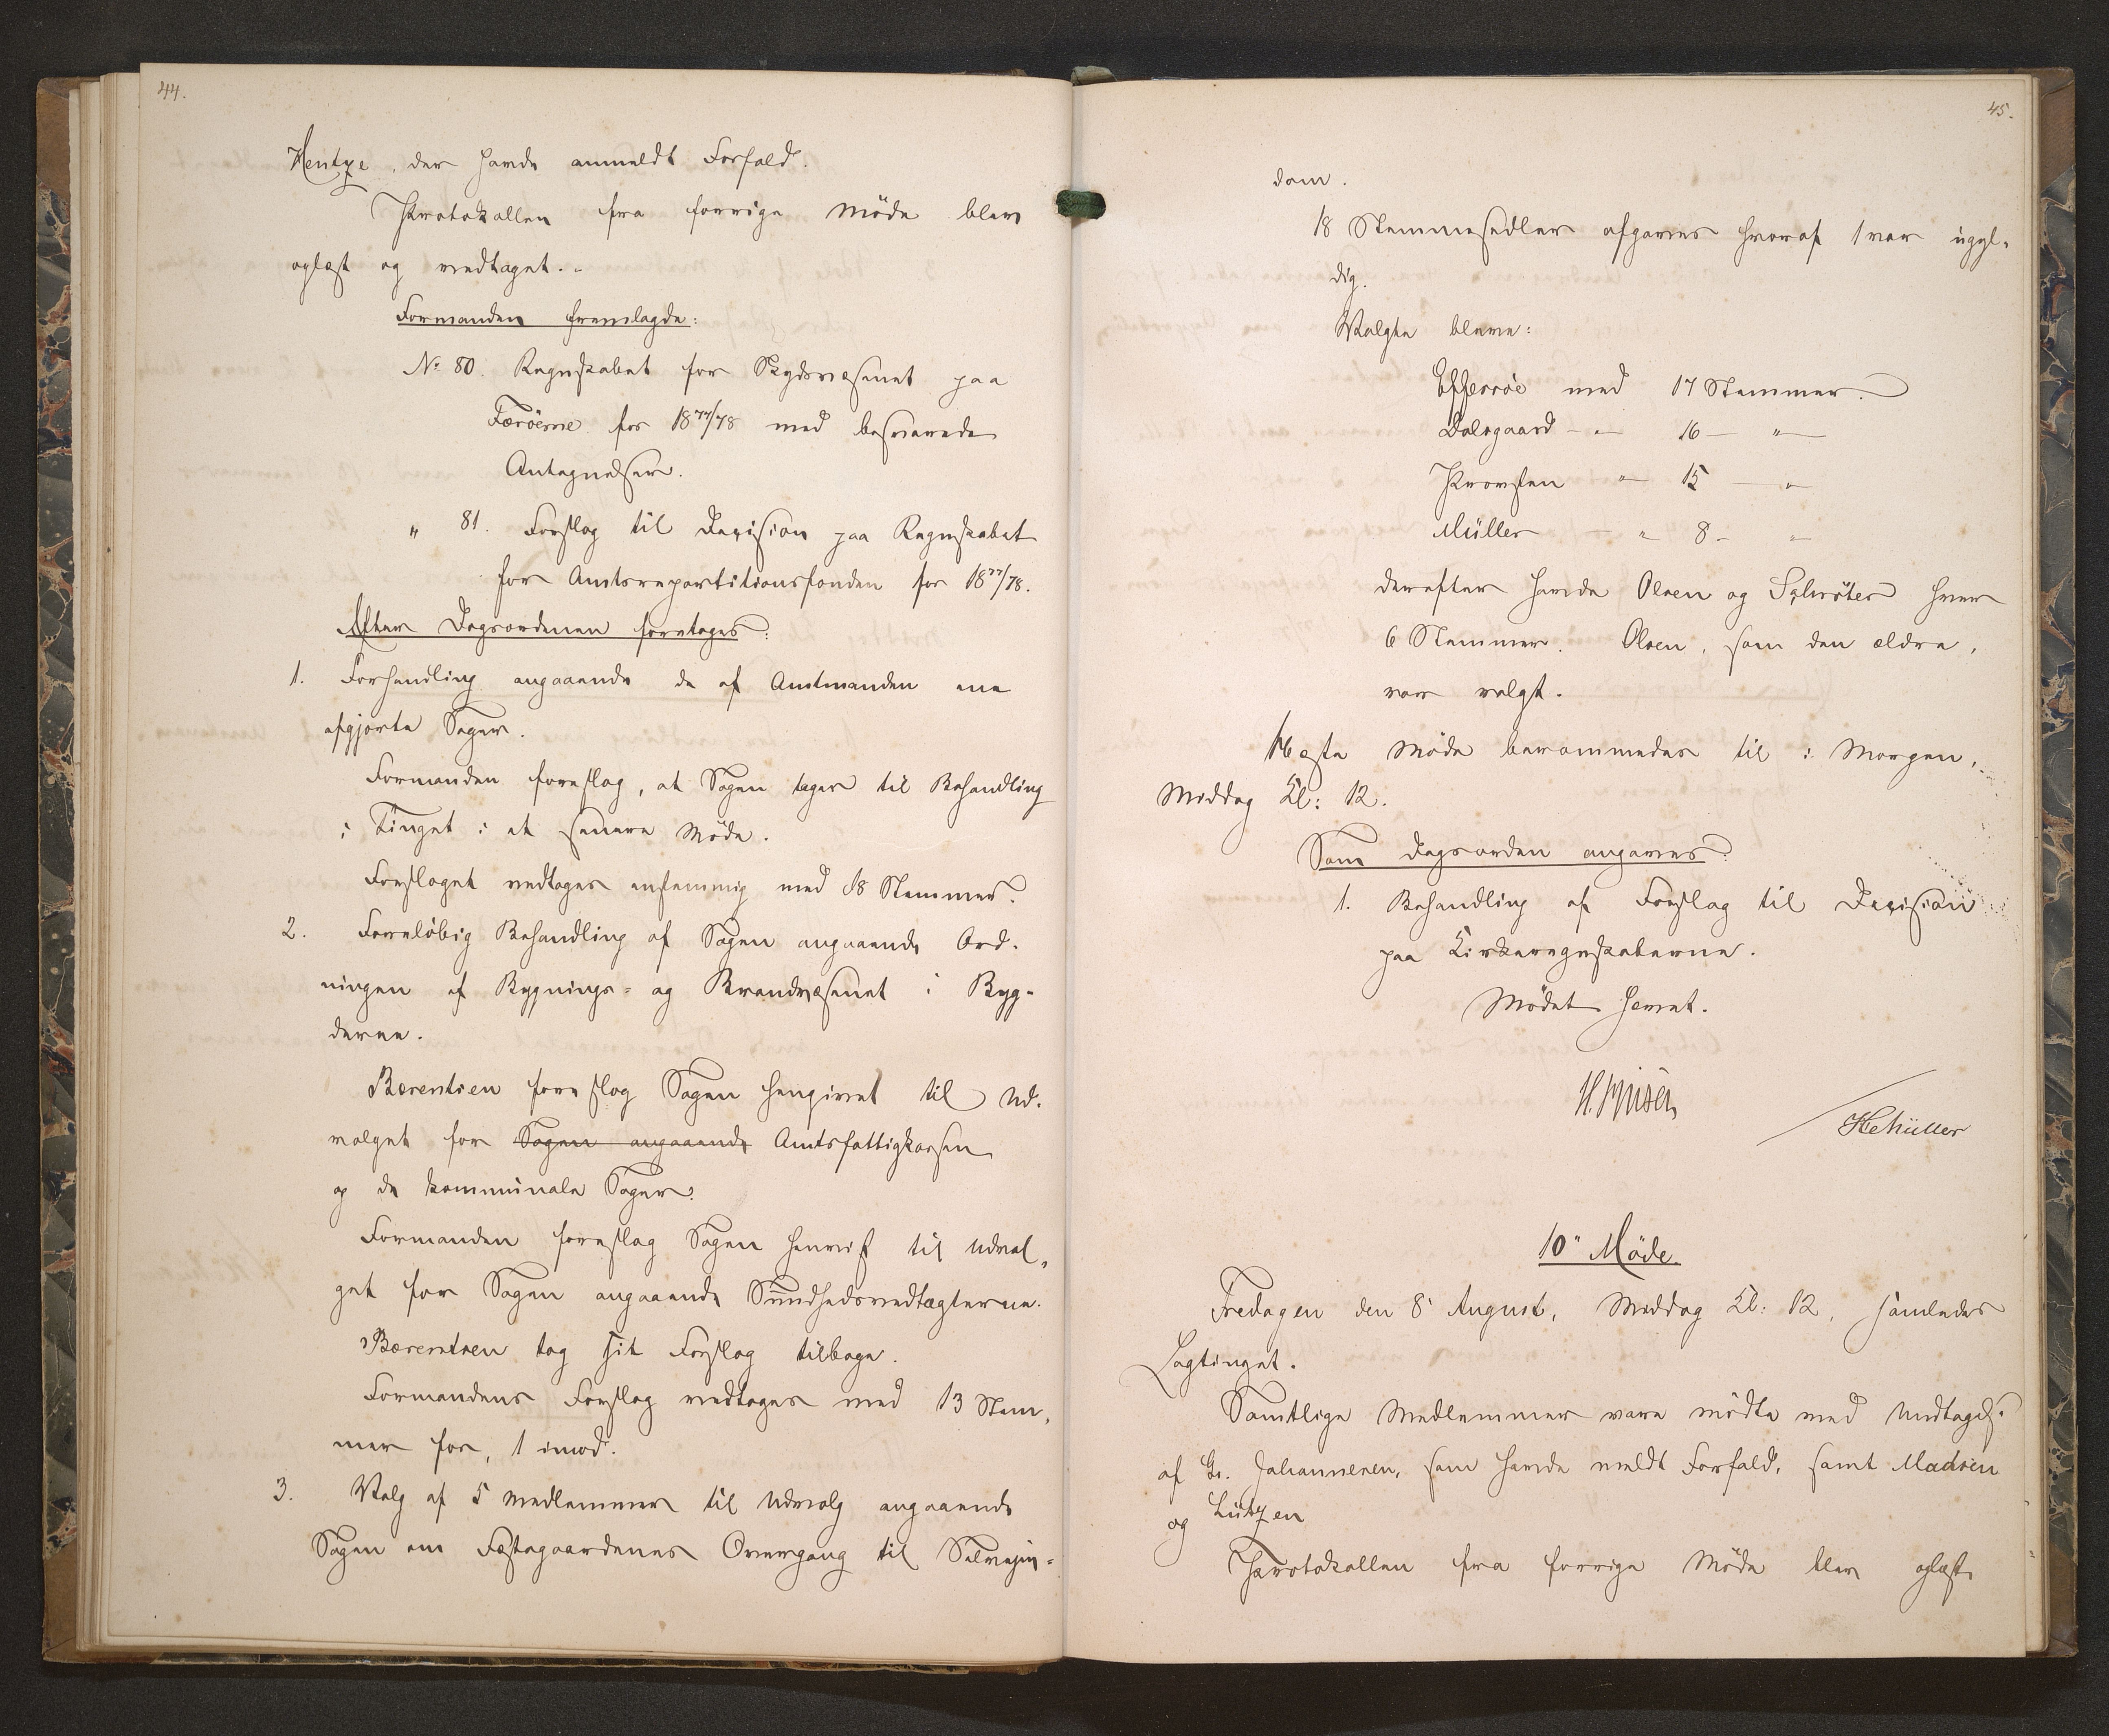 44.
Hentze, der havde anmeldt Forfald.
Protokollen fra forrige Möde blev
oplæst og vedtaget.-
Formanden fremlagde:
No 80. Regnskabet for Skydsvæsenet paa
Færöerne for 1877/78 med besvarede
Antegnelser.
" 81. Forslag til Decision paa Regnskabet
for Amtsrepartitionsfonden for 1877/78.
Efter Dagsordenen foretoges:
1. Forhandling angaaende de af Amtmanden ene
afgjorte Sager.
Formanden foreslog, at Sagen tages til Behandling
i Tinget i et senere Möde.
Forslaget vedtoges enstemmig med 18 Stemmer.
2. Foreløbig Behandling af Sagen angaaende Ord-
ningen af Bygnings- og Brandvæsenet i Byg-
derne.
Bærentsen foreslog Sagen hengivet til Ud-
valget for Sagen angaaende Amtsfattigkassen
og de kommunale Sager.
Formanden foreslog Sagen henvist til Udval-
get for Sagen angaaende Sundhedsvedtægterne.
Bærentsen tog sit Forslag tilbage.
Formandens Forslag vedtoges med 13 Stem-
mer for, 1 imod.
3. Valg af 5 Medlemmer til Udvalg angaaende
Sagen om Fæstegaardenes Overgang til Selvejen-
45.
dom.
18 Stemmesedler afgaves hvoraf 1 var ugyl-
dig.
Valgte bleve:
Effersöe med 17 Stemmer.
Dalsgaard - " 16 - " -
Provsten " 15 - "
Müller - " 8 - "
derefter havde Olsen og Schröter hver
6 Stemmer. Olsen, som den ældre,
var valgt.
Næste Möde berammedes til i Morgen,
Middag Kl: 12.
Som Dagsorden angaves:
1. Behandling af Forslag til Decision
paa Kirkeregnskaberne.
Mödet hævet.
HMüller
10" Möde.
Fredagen den 8' August, Middag Kl: 12, samledes
Lagtinget.
Samtlige Medlemmer vare mödte med Undtagels.
af Gr. Johannesen, som havde meldt Forfald, samt Madsen
og Lützen
Protokollen fra forrige Möde blev oplæst